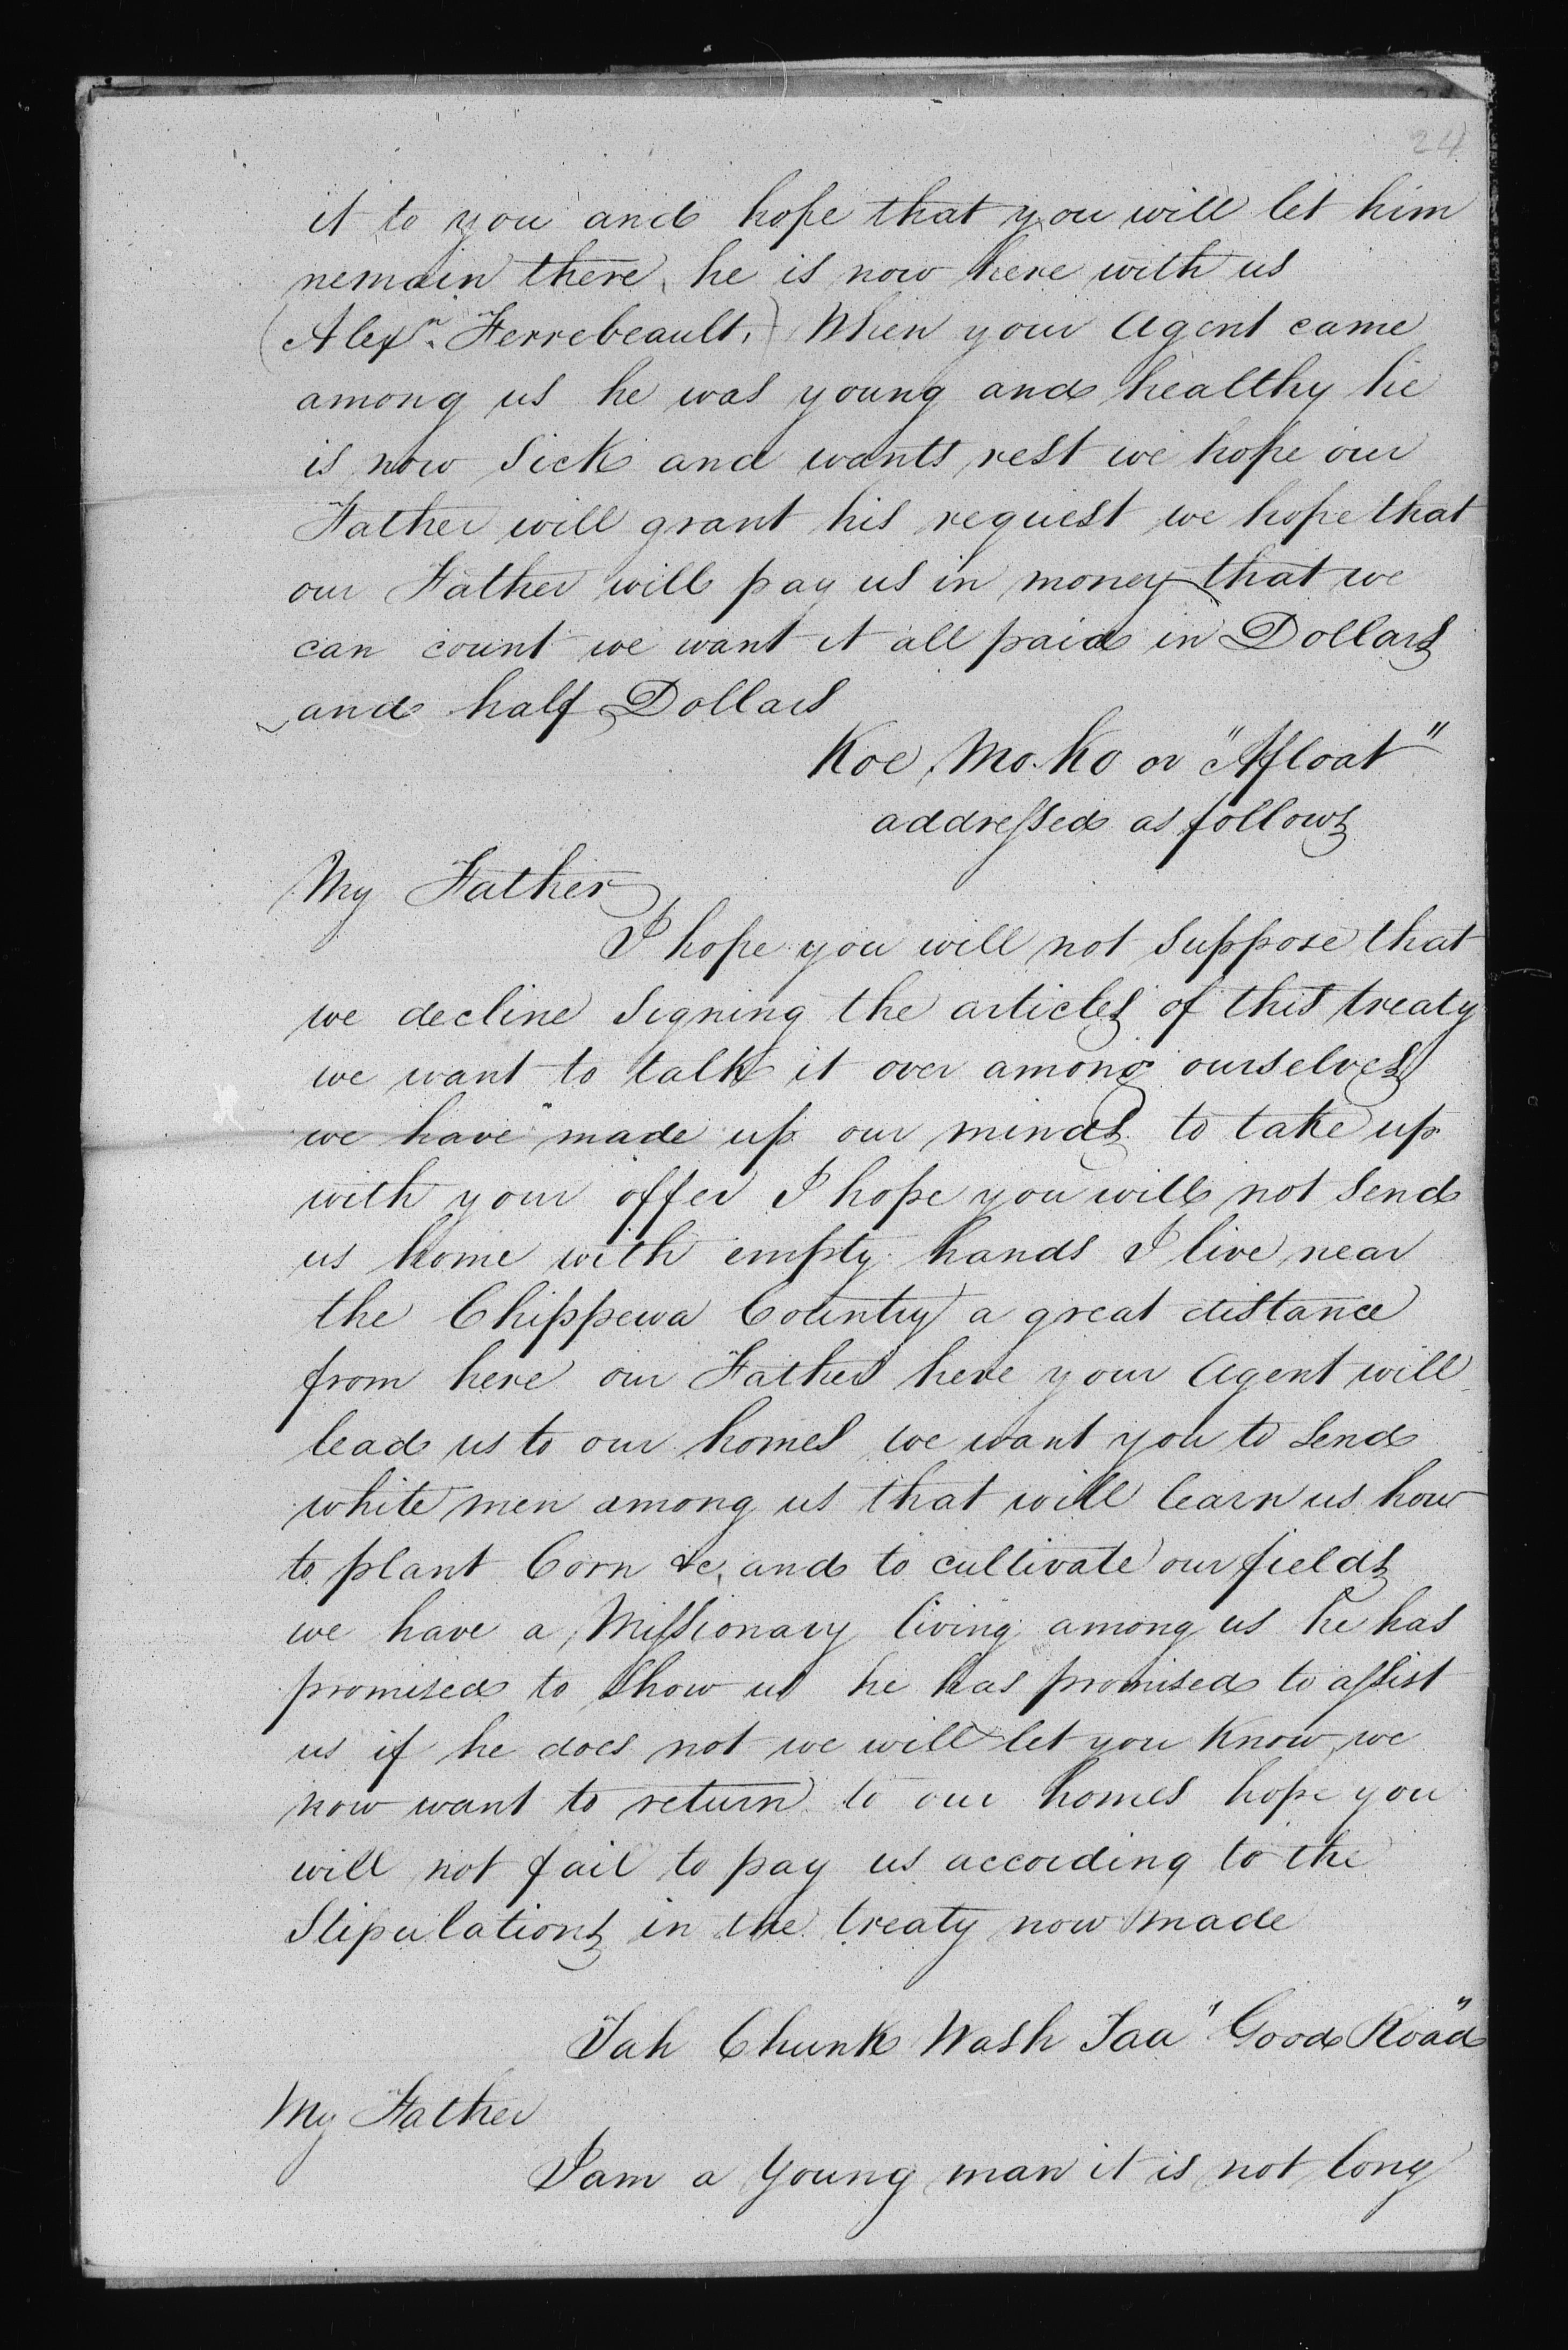 24
it to you and hope that you will let him
remain there, he is now here with us
(Alexr. Ferrebeault.) When your Agent came
among us he was young and healthy he
is now sick and wants rest we hope our
Father will grant his request we hope that
our Father will pay us in money that we
can count we want it all paid in Dollars
and half Dollars
Koe, Mo. Ko or "Afloat"
addressed as follows
My Father
I hope you will not suppose that
we decline signing the articles of this treaty
we want to talk it over among ourselves
we have made up our minds to take up
with your offer I hope you will not send
us home with empty hands I live near
the Chippewa Country a great distance
from here our Father here your Agent will
lead us to our homes we want you to send
white men among us that will learn us how
to plant Corn &c, and to cultivate our fields
we have a Missionary living among us he has
promised to show us he has promised to assist
us if he does not we will let you Know, we
now want to return to our homes hope you
will not fail to pay us according to the
Stipulations in the treaty now made
Tah Chunk Wash Taa "Good Road"
My Father
I am a Young man it is not long